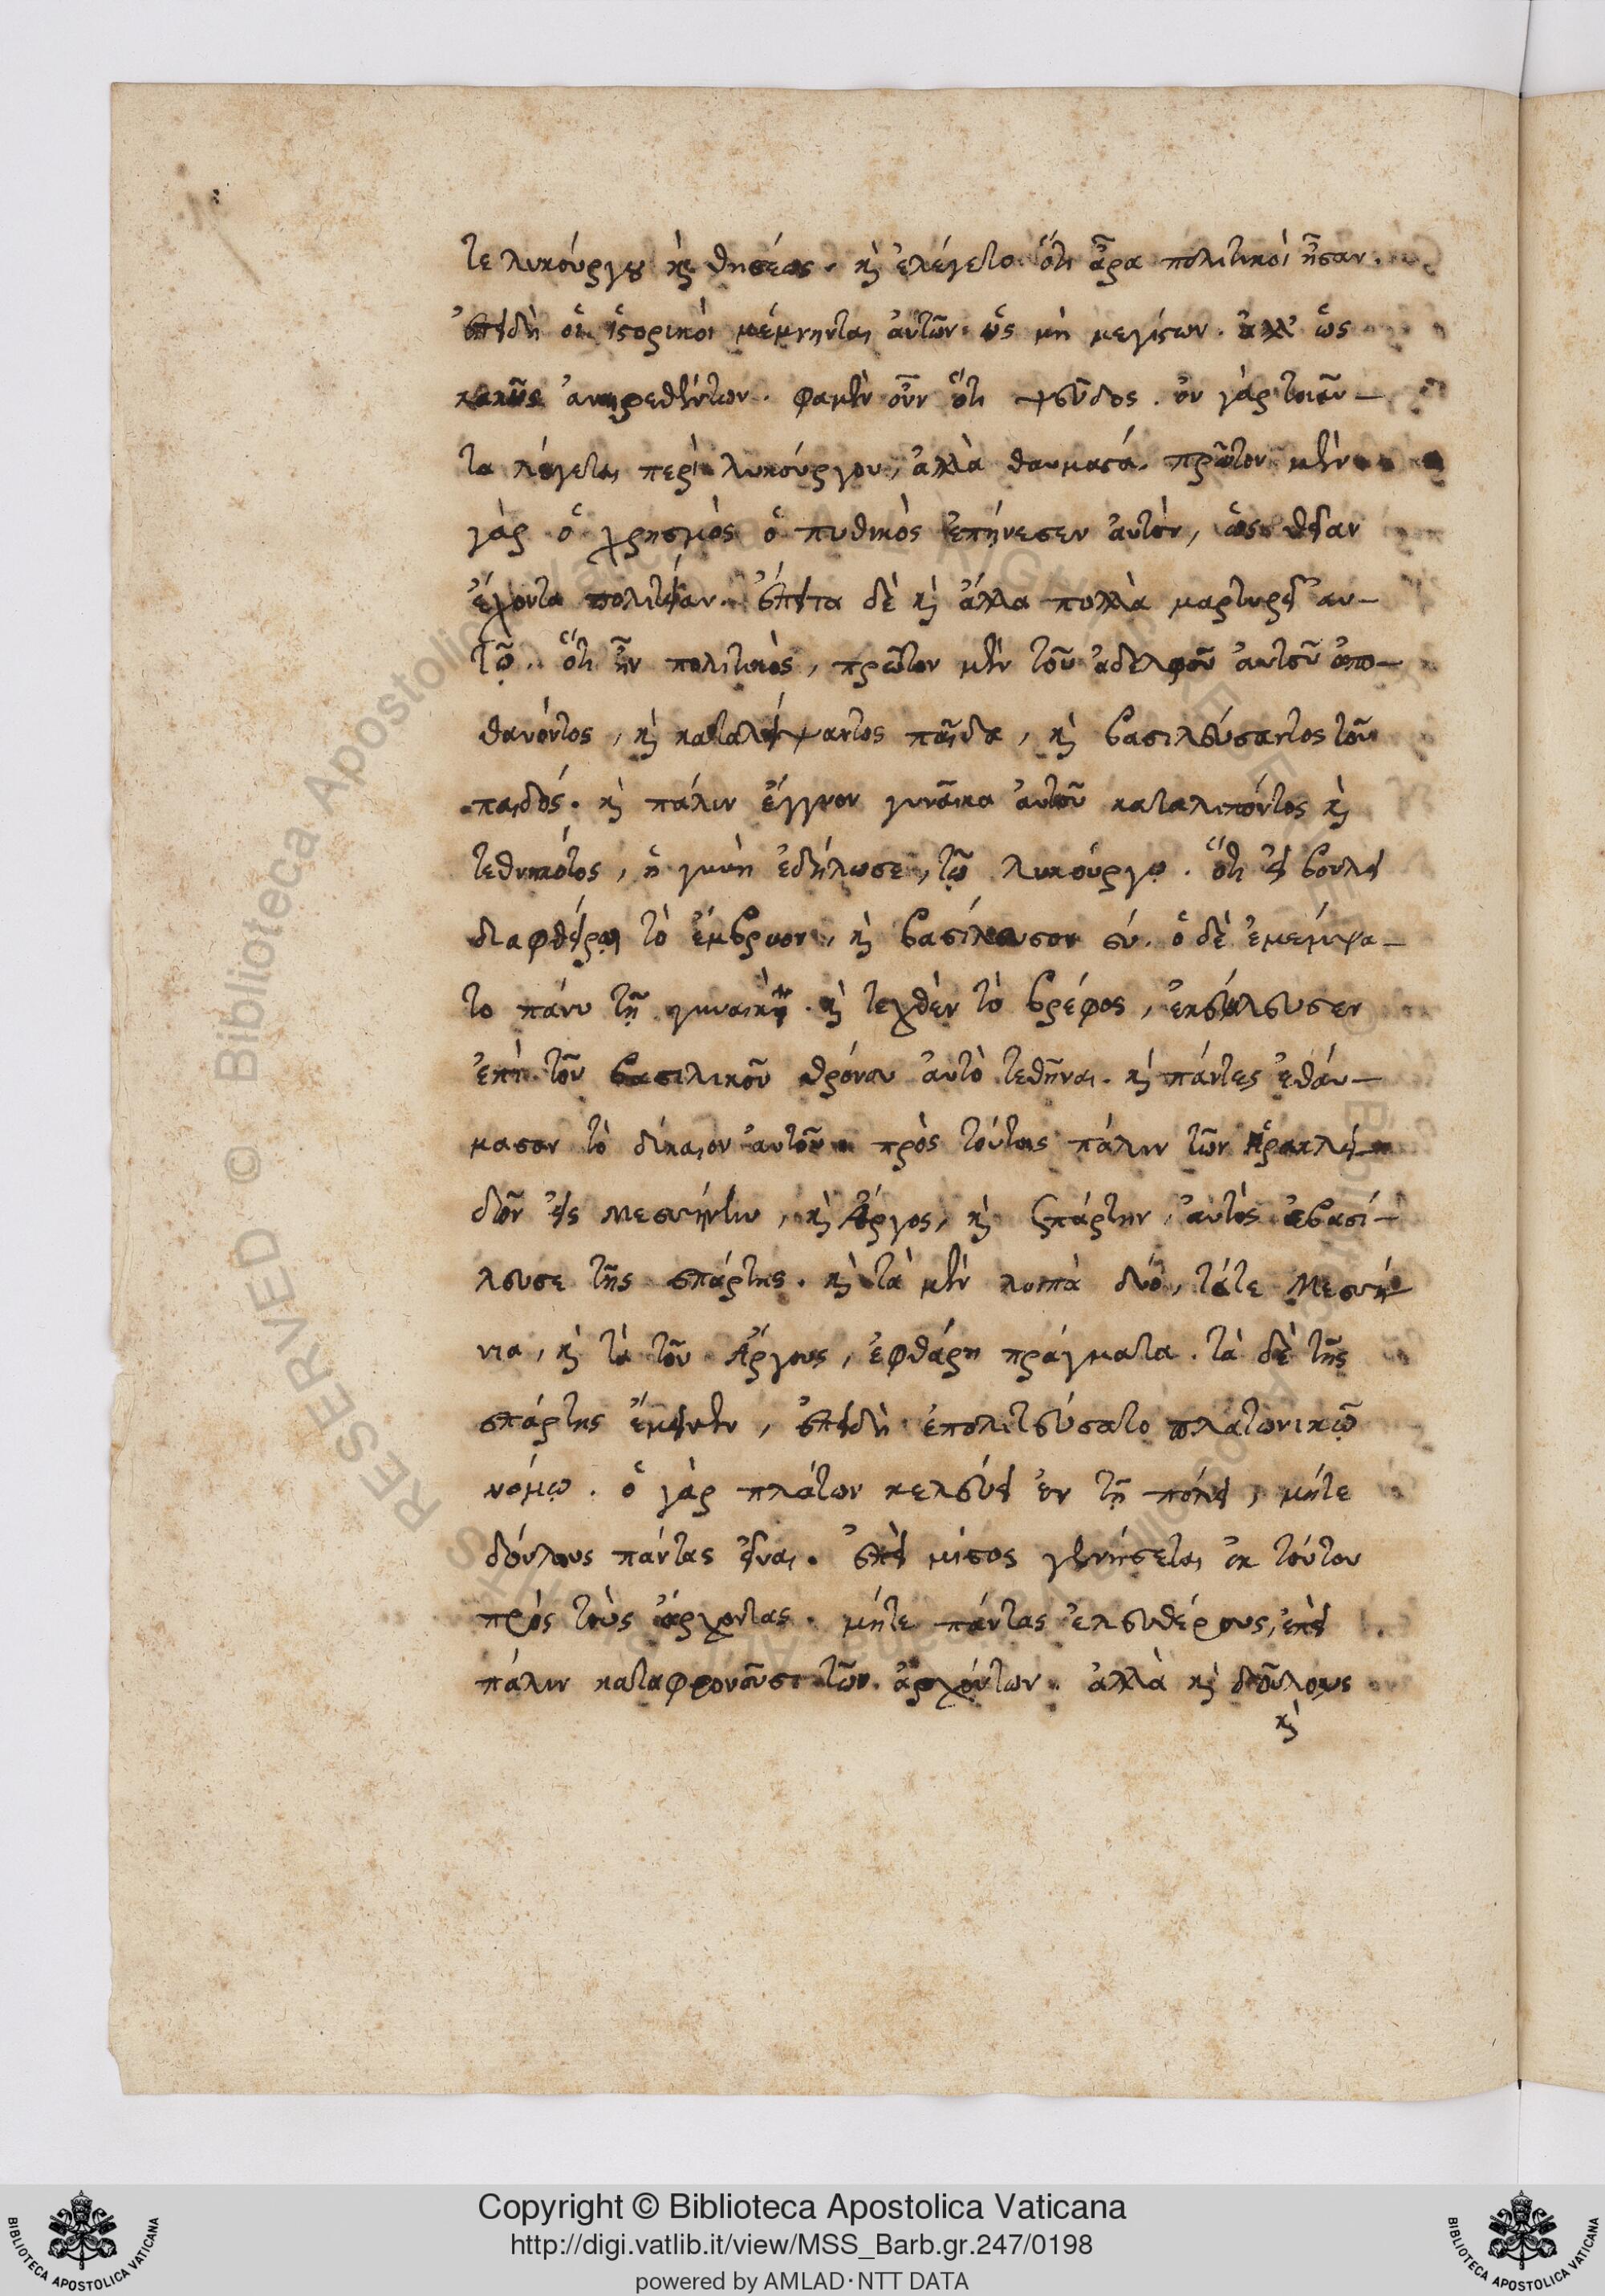 τε λυκούργου καὶ θησέως. καὶ ἐλέγετο ὅτι ἆρα πολιτικοὶ ἦσαν.
ἐπειδὴ οἱ ἱστορικοὶ μέμνηνται αὐτῶν. ὡς μὴ μεγίστων. ἀλλ' ὡς
κακῶς ἀναιρεθέντων. φαμὲν οὖν ὅτι ψεῦδος. οὐ γὰρ τοιαῦ–
τα λέγεται περὶ λυκούργου, ἀλλὰ θαυμαστά. πρῶτον μὲν
γὰρ ὁ χρησμὸς ὁ πυθικὸς ἐπήνεσεν αὐτὸν, ὡς θείαν
ἔχοντα πολιτείαν. ἔπειτα δὲ καὶ ἄλλα πολλὰ μαρτυρεῖ αυ–
τῷ. ὅτι ἦν πολιτικὸς, πρῶτον μὲν τοῦ ἀδελφοῦ αὐτοῦ ἀπο–
θανόντος, καὶ καταλείψαντος παῖδα, καὶ βασιλεύσαντος τοῦ
παιδός. καὶ πάλιν ἔγγυον γυναῖκα αὐτοῦ καταλιπόντος καὶ
τεθνηκότος, ἡ γυνὴ ἐδήλωσε τῷ λυκούργῳ. ὅτι εἰ βούλει
διαφθείρω τὸ ἔμβρυον, καὶ βασίλευσον σύ. ὁ δὲ ἐμέμψα–
το πάνυ τῇ γυναικὶ. καὶ τεχθὲν τὸ βρέφος, ἐκέλευσεν
ἐπὶ τοῦ βασιλικοῦ θρόνου αὐτὸ τεθῆναι. καὶ πάντες ἐθαύ–
μασαν τὸ δίκαιον αὐτοῦ. πρὸς τούτοις πάλιν τῶν Ἡρακλει–
δῶν εἰς Μεσήνην, καὶ Ἄργος, καὶ Σπάρτην, αὐτὸς ἐβασί–
λευσε τῆς σπάρτης. καὶ τὰ μὲν λοιπὰ δύο, τάτε Μεσή–
νια, καὶ τὰ τοῦ Ἄργους, ἐφθάρη πράγματα. τὰ δὲ τῆς
σπάρτης ἔμεινεν, ἐπειδὴ ἐπολιτεύσατο πλατωνικῷ
νόμῳ. ὁ γὰρ πλάτων κελεύει ἐν τῇ πόλει, μήτε
δούλους πάντας εἶναι. ἐπεὶ μίσος γεννήσεται ἐκ τούτου
πρὸς τοὺς ἄρχοντας. μήτε πάντας ἐλευθέρους, ἐπεὶ
πάλιν καταφρονοῦσι τῶν ἀρχόντων. ἀλλὰ καὶ δούλους
καὶ
Copyright © Biblioteca Apostolica Vaticana
http://digi.vatlib.it/view/MSS_Barb.gr.247/0198
powered by AMLAD·NTT DATA